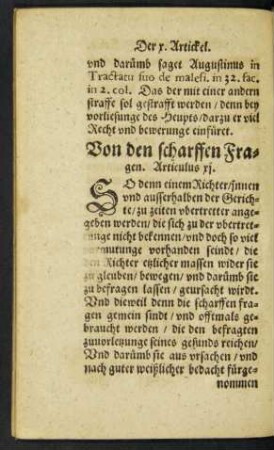 Der x. Artickel.
vnd darümb saget Augustinus in
Tractatu suo de malefi. in 32. fac.
in 2. col. Das der mit einer andern
straffe sol gestrafft werden / denn bey
vorliesunge des Heupts / darzu er viel
Recht vnd bewerunge einfüret.
Von den scharffen Fra-
gen. Articulus xj.
SO denn einem Richter / jnnen
vnd ausserhalben der Gerich-
te / zu zeiten vbertretter ange-
geben werden / die sich zu der vbertret-
tunge nicht bekennen / vnd doch so viel
vermutunge vorhanden seindt / die
den Richter etzlicher massen wider sie
zu gleuben / bewegen / vnd darümb sie
zu befragen lassen / geursacht wirdt.
Vnd dieweil denn die scharffen fra-
gen gemein sindt / vnd offtmals ge-
braucht werden / die den befragten
zuuorletzunge seines gesunds reichen /
Vnd darümb sie aus vrsachen / vnd
nach guter weißlicher bedacht fürge-
nommen